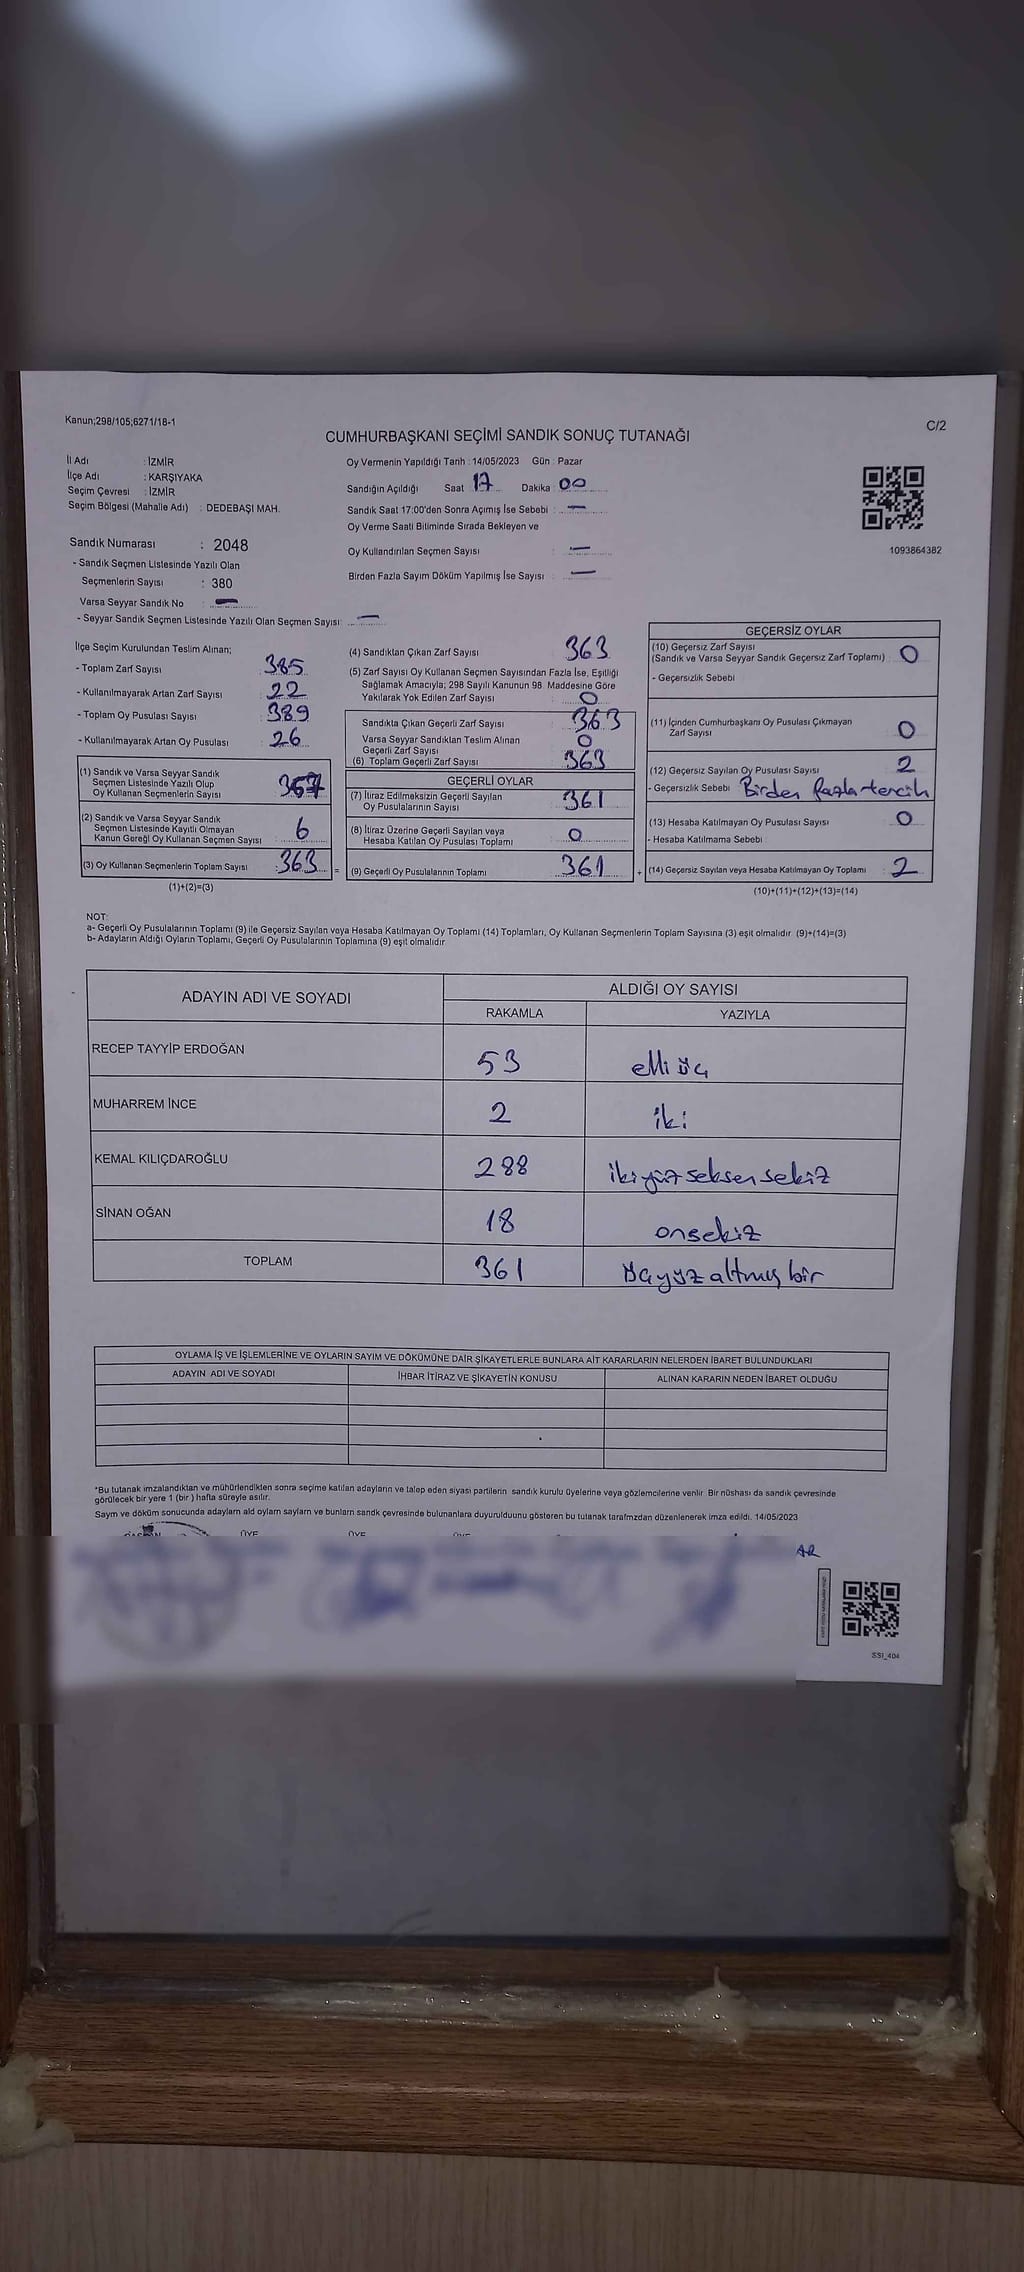 Kanun;298/105;6271/18-1
C/2
CUMHURBAŞKANI SEÇİMİ SANDIK SONUÇ TUTANAĞI
İl Adı : İZMİR
İlçe Adı : KARŞIYAKA
Seçim Çevresi : İZMİR
Seçim Bölgesi (Mahalle Adı) : DEDEBAŞI MAH.
Sandık Numarası : 2048
- Sandık Seçmen Listesinde Yazılı Olan
Seçmenlerin Sayısı : 380
Varsa Seyyar Sandık No : —
- Seyyar Sandık Seçmen Listesinde Yazılı Olan Seçmen Sayısı: —
Oy Vermenin Yapıldığı Tarih : 14/05/2023 Gün : Pazar
Sandığın Açıldığı Saat 17 Dakika : 00
Sandık Saat 17:00'den Sonra Açımış İse Sebebi : —
Oy Verme Saati Bitiminde Sırada Bekleyen ve
Oy Kullandırılan Seçmen Sayısı : —
Birden Fazla Sayım Döküm Yapılmış İse Sayısı : —
1093864382
İlçe Seçim Kurulundan Teslim Alınan;
- Toplam Zarf Sayısı : 385
- Kullanılmayarak Artan Zarf Sayısı : 22
- Toplam Oy Pusulası Sayısı : 389
- Kullanılmayarak Artan Oy Pusulası : 26
(1) Sandık ve Varsa Seyyar Sandık
Seçmen Listesinde Yazılı Olup
Oy Kullanan Seçmenlerin Sayısı : 357
(2) Sandık ve Varsa Seyyar Sandık
Seçmen Listesinde Kayıtlı Olmayan
Kanun Gereği Oy Kullanan Seçmen Sayısı : 6
(3) Oy Kullanan Seçmenlerin Toplam Sayısı : 363 =
(1)+(2)=(3)
(4) Sandıktan Çıkan Zarf Sayısı : 363
(5) Zarf Sayısı Oy Kullanan Seçmen Sayısından Fazla İse, Eşitliği
Sağlamak Amacıyla; 298 Sayılı Kanunun 98. Maddesine Göre
Yakılarak Yok Edilen Zarf Sayısı : 0
Sandıkta Çıkan Geçerli Zarf Sayısı : 363
Varsa Seyyar Sandıktan Teslim Alınan
Geçerli Zarf Sayısı : 0
(6) Toplam Geçerli Zarf Sayısı : 363
GEÇERLİ OYLAR
(7) İtiraz Edilmeksizin Geçerli Sayılan
Oy Pusulalarının Sayısı : 361
(8) İtiraz Üzerine Geçerli Sayılan veya
Hesaba Katılan Oy Pusulası Toplamı : 0
(9) Geçerli Oy Pusulalarının Toplamı : 361 +
GEÇERSİZ OYLAR
(10) Geçersiz Zarf Sayısı
(Sandık ve Varsa Seyyar Sandık Geçersiz Zarf Toplamı) : 0
- Geçersizlik Sebebi
(11) İçinden Cumhurbaşkanı Oy Pusulası Çıkmayan
Zarf Sayısı : 0
(12) Geçersiz Sayılan Oy Pusulası Sayısı : 2
- Geçersizlik Sebebi Birden fazla tercih
(13) Hesaba Katılmayan Oy Pusulası Sayısı : 0
- Hesaba Katılmama Sebebi
(14) Geçersiz Sayılan veya Hesaba Katılmayan Oy Toplamı : 2
(10)+(11)+(12)+(13)=(14)
NOT:
a- Geçerli Oy Pusulalarının Toplamı (9) ile Geçersiz Sayılan veya Hesaba Katılmayan Oy Toplamı (14) Toplamları, Oy Kullanan Seçmenlerin Toplam Sayısına (3) eşit olmalıdır. (9)+(14)=(3)
b- Adayların Aldığı Oyların Toplamı, Geçerli Oy Pusulalarının Toplamına (9) eşit olmalıdır.
ADAYIN ADI VE SOYADI ALDIĞI OY SAYISI
RAKAMLA YAZIYLA
RECEP TAYYİP ERDOĞAN 53 elli üç
MUHARREM İNCE 2 iki
KEMAL KILIÇDAROĞLU 288 ikiyüz seksen sekiz
SİNAN OĞAN 18 onsekiz
TOPLAM 361 üçyüz altmış bir
OYLAMA İŞ VE İŞLEMLERİNE VE OYLARIN SAYIM VE DÖKÜMÜNE DAİR ŞİKAYETLERLE BUNLARA AİT KARARLARIN NELERDEN İBARET BULUNDUKLARI
ADAYIN ADI VE SOYADI İHBAR İTİRAZ VE ŞİKAYETİN KONUSU ALINAN KARARIN NEDEN İBARET OLDUĞU
*Bu tutanak imzalandıktan ve mühürlendikten sonra seçime katılan adayların ve talep eden siyasi partilerin sandık kurulu üyelerine veya gözlemcilerine verilir. Bir nüshası da sandık çevresinde
görülecek bir yere 1 (bir ) hafta süreyle asılır.
Sayım ve döküm sonucunda adayların ald oylarn sayların ve bunların sandk çevresinde bulunanlara duyurulduunu gösteren bu tutanak tarafmzdan düzenlenerek imza edildi. 14/05/2023
ÜYE ÜYE ÜYE
AR
SSI_404